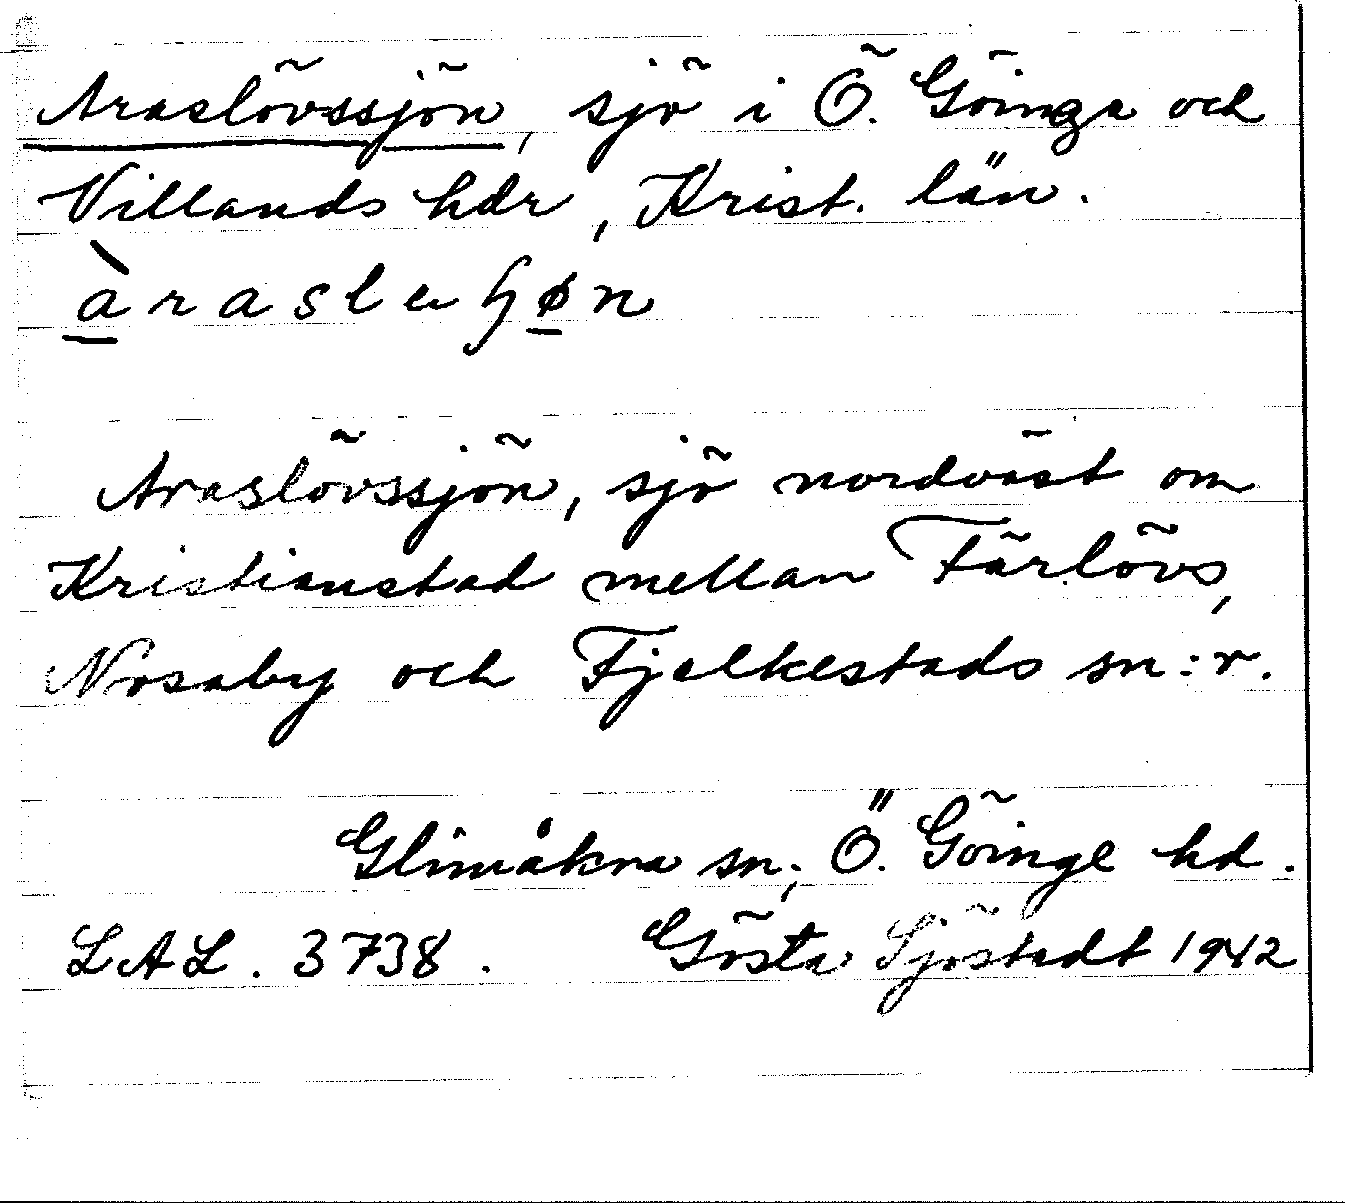 Araslövssjön, sjö i Ö. Göinga och
Villands hdr, Krist. län.
àraslɐɧøn
Araslövssjön, sjö nordväst om
Kristianstad mellan Färlövs,
Nosaby och Fjelkestads sn:r.
Glimåkra sn; Ö. Göinge hd.
LAL. 3738. Gösta Sjöstedt 1942